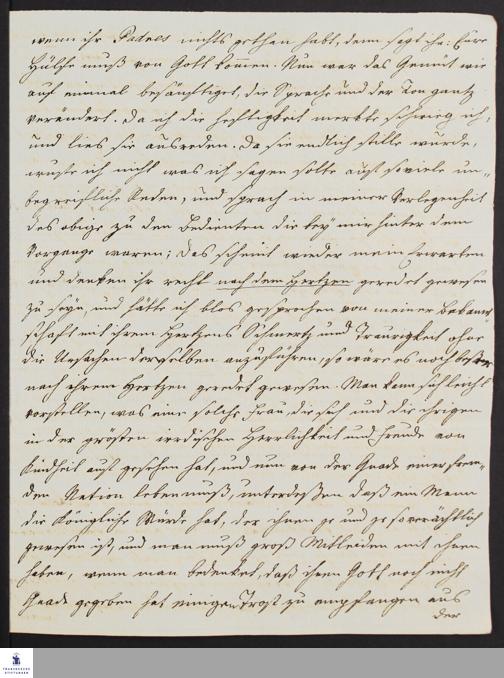 wenn ihr Padres nichts gethan habt, denn sagt ihr: Eure
Hülfe muß von Gott kommen. Nun war das Gemüt wie
auf einmal besänftiget, die Sprache und der Ton gantz
verändert. Da ich die Heftigkeit merkte schwieg ich,
und lies sie ausreden. Da sie endlich stille wurde,
wuste ich nicht was ich sagen solte auf soviele un-
begreifliche Reden, und sprach in meiner Verlegenheit
das obige zu den Bedienten die bey mir hinter dem
Vorhange waren; das scheint wieder mein Erwarten
und denken ihr recht nach dem Hertzen geredet gewesen
zu seyn, und hätte ich blos gesprochen von meiner Bekant-
schaft mit ihrem Hertzens Schmertz und Traurigkeit ohne
die Ursachen derselben anzuführen, so wäre es noch besser
nach ihrem Hertzen geredet gewesen. Man kann sich leicht
vorstellen, was eine solche Frau, die sich und die ihrigen
in der grösten irrdischen Herrlichkeit und Freude von
Kindheit auf gesehen hat, und nun von der Gnade einer frem-
den Nation leben muß, unterdeßen daß ein Mann
die Königliche Würde hat, der ihnen je und je so verächtlich
gewesen ist, und man muß groß Mitleiden mit ihnen
haben, wenn man bedenket, daß ihnen Gott noch nicht
Gnade gegeben hat einigen Trost zu empfangen aus
der
FRANCKESCHE
STIFTUNGEN